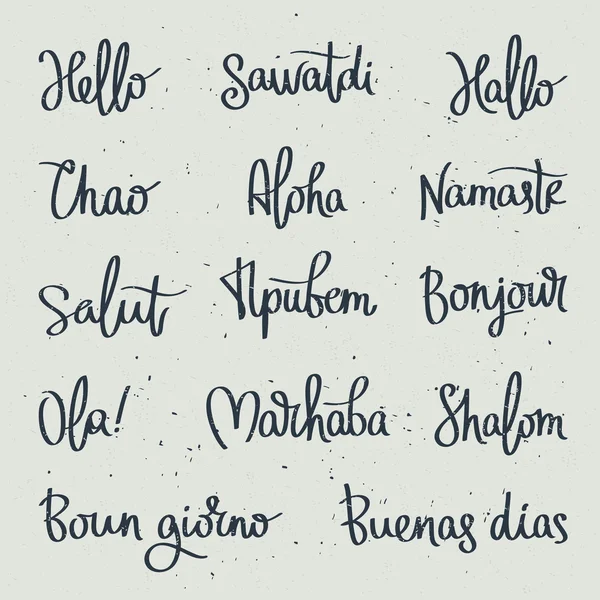 Hello Sawatdi Hallo
Chao Aloha Namaste
Salut Привет Bonjour
Ola! Marhaba Shalom
Boun giorno Buenas dias